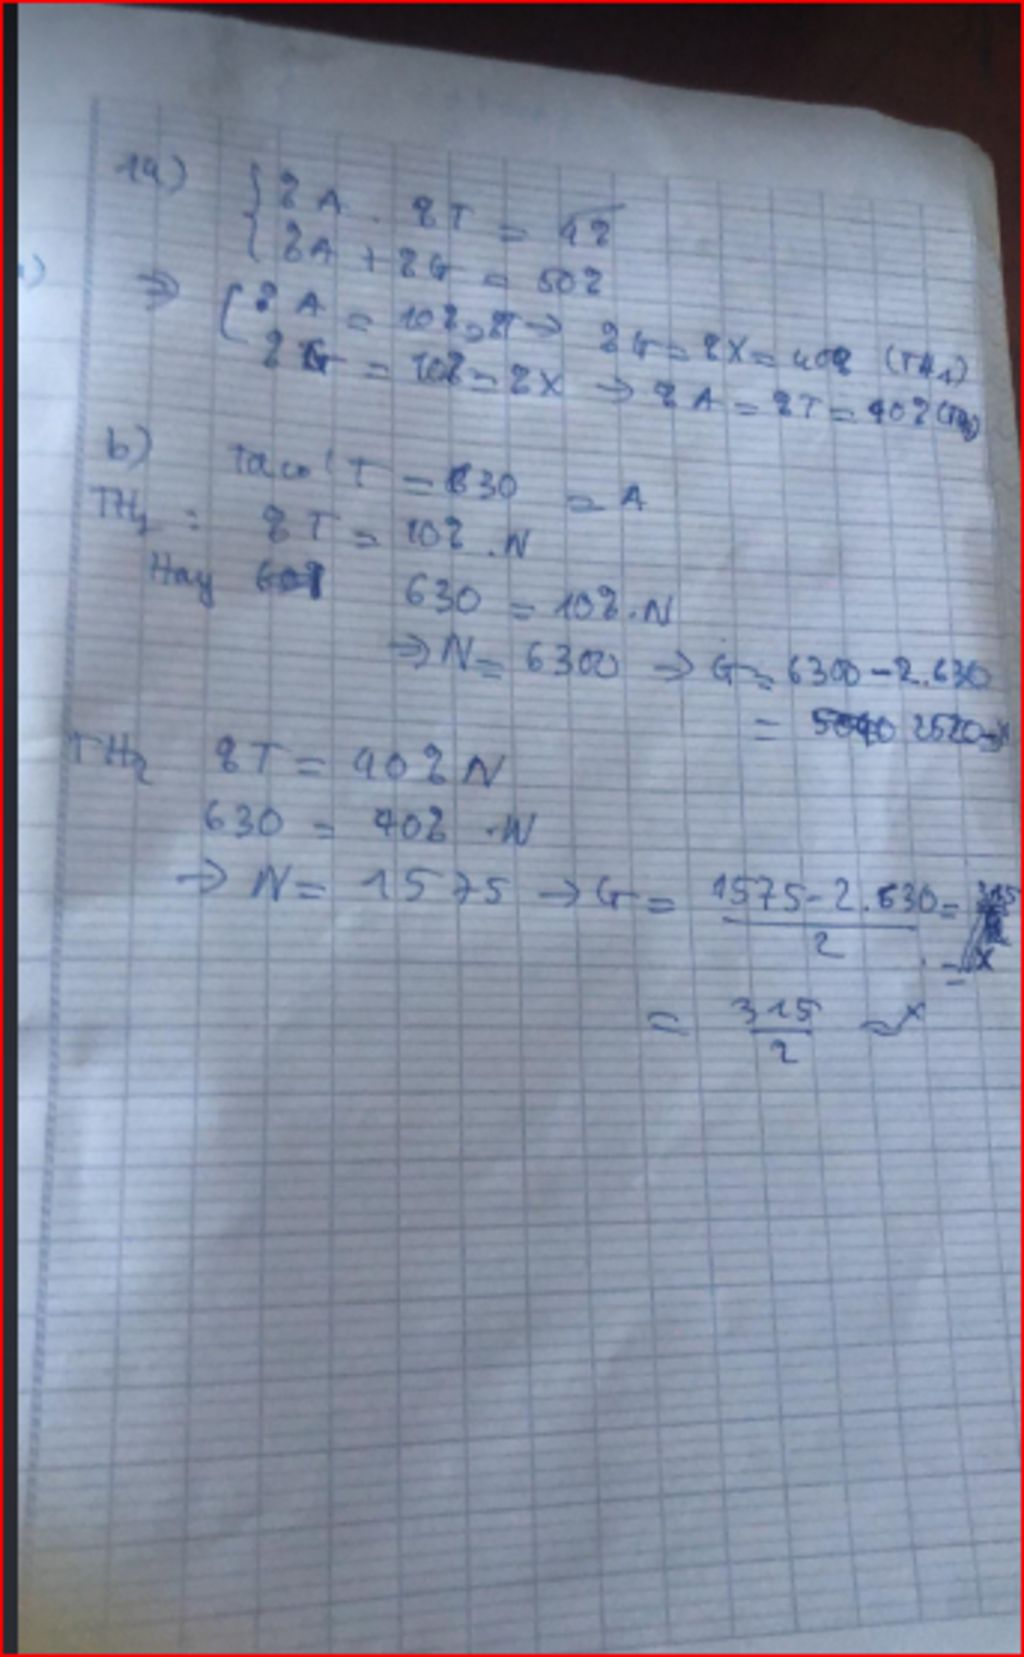 1a) { %A . %T = 4%
{ %A + %G = 50%
⇒ [ %A = 10% = %T → %G = %X = 40% (TH1)
%G = 10% = %X → %A = %T = 40% (TH2)
b) Ta có T = 630 = A
TH1 : %T = 10% . N
Hay 630 = 10% . N
⇒ N = 6300 → G = 6300 - 2.630
= 2520 = X
TH2 %T = 40% N
630 = 40% . N
→ N = 1575 → G = 1575 - 2.630 / 2 = 315
= X
= 315/2 = X